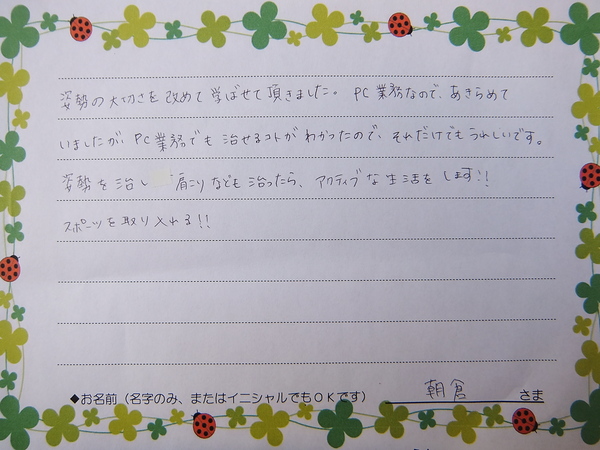 姿勢の大切さを改めて学ばせて頂きました。PC業務なので、あきらめて
いましたが、PC業務でも治せるコトがわかったので、それだけでもうれしいです。
姿勢を治し 肩こりなども治ったら、アクティブな生活をします!!
スポーツを取り入れる!!
◆お名前（名字のみ、またはイニシャルでもOKです） 朝倉 さま